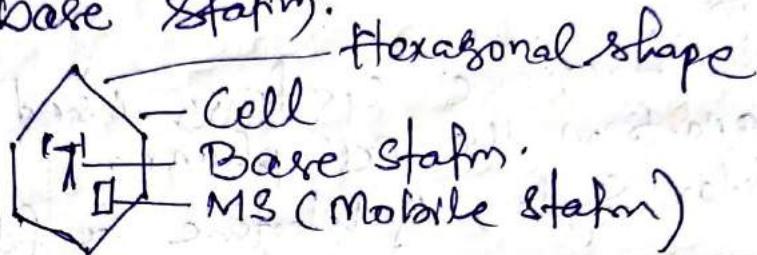 base station.
Hexagonal shape
Cell
Base station.
MS (Mobile station)